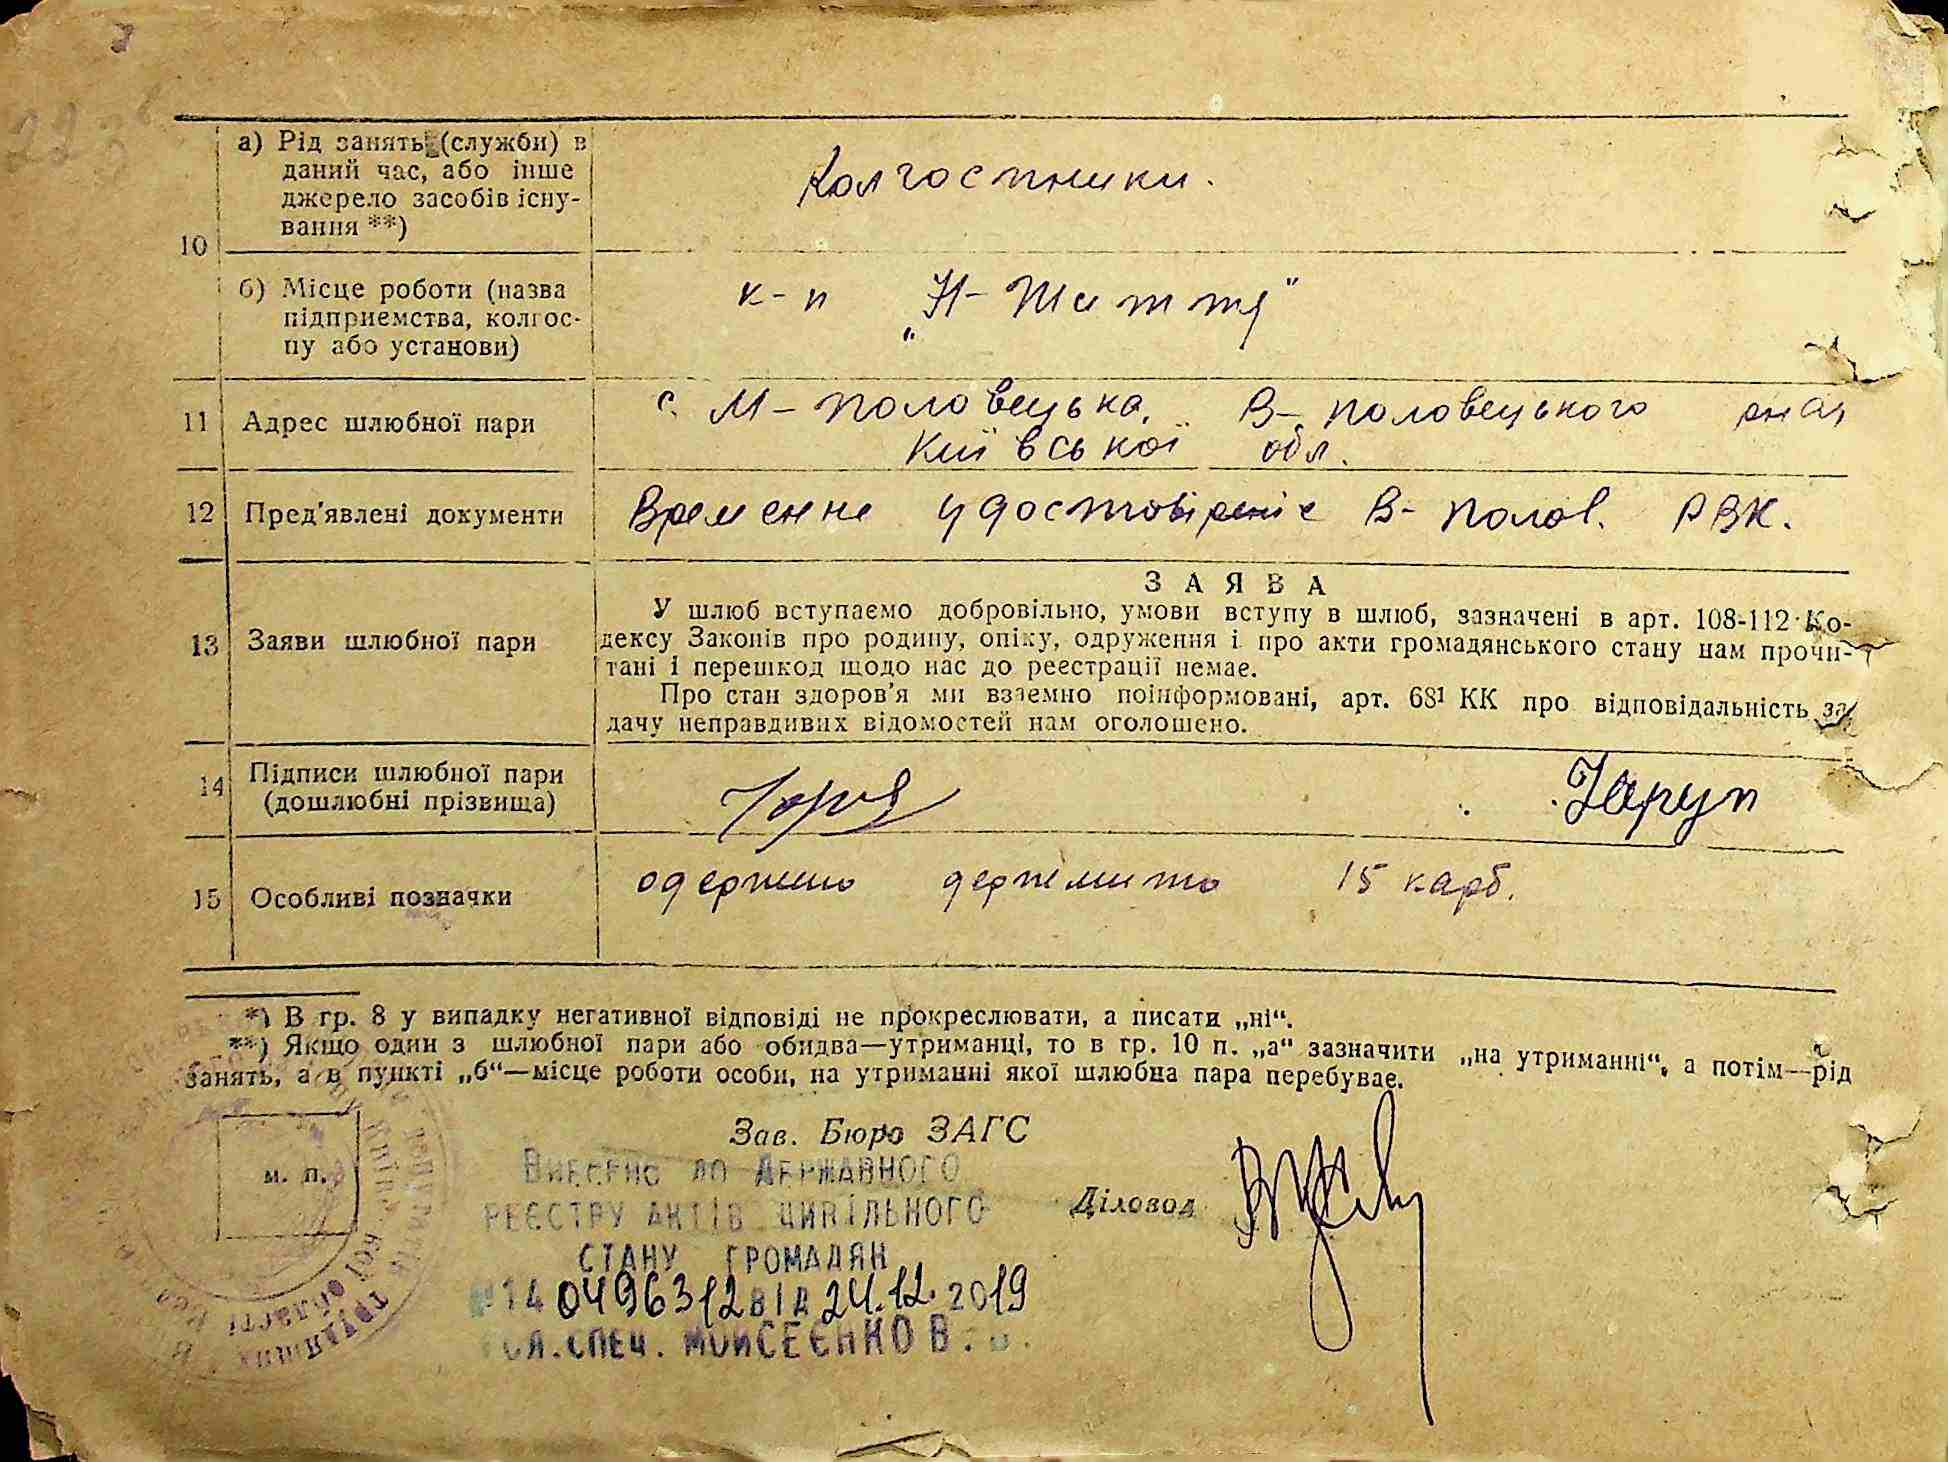 10
а) Рід занять (служби) в
даний час, або інше
джерело засобів існу-
вання **)
Колгоспники.
б) Місце роботи (назва
підприємства, колгос-
пу або установи)
к-п „Н-Життя"
11 Адрес шлюбної пари
с. М-Половецька, В-Половецького
Київської обл.
12 Пред'явлені документи
Временне удостовіреніє В-Полов. РВК.
13 Заяви шлюбної пари
ЗАЯВА
У шлюб вступаємо добровільно, умови вступу в шлюб, зазначені в арт. 108-112 Ко-
дексу Законів про родину, опіку, одруження і про акти громадянського стану нам прочи-
тані і перешкод щодо нас до реєстрації немає.
Про стан здоров'я ми взаємно поінформовані, арт. 68¹ КК про відповідальність за
дачу неправдивих відомостей нам оголошено.
14 Підписи шлюбної пари
(дошлюбні прізвища)
15 Особливі позначки
одержано держмито 15 карб.
*) В гр. 8 у випадку негативної відповіді не прокреслювати, а писати „ні“.
**) Якщо один з шлюбної пари або обидва—утриманці, то в гр. 10 п. „а“ зазначити „на утриманні“, а потім—рід
занять, а в пункті „б“—місце роботи особи, на утриманні якої шлюбна пара перебуває.
м. п.
Зав. Бюро ЗАГС
Діловод
ВНЕСЕНО ДО ДЕРЖАВНОГО
РЕЄСТРУ АКТІВ ЦИВІЛЬНОГО
СТАНУ ГРОМАДЯН
№14 0496312 ВІД 24.12.2019
СПЕЦ. МОИСЕЄНКО В.
трудящих
області